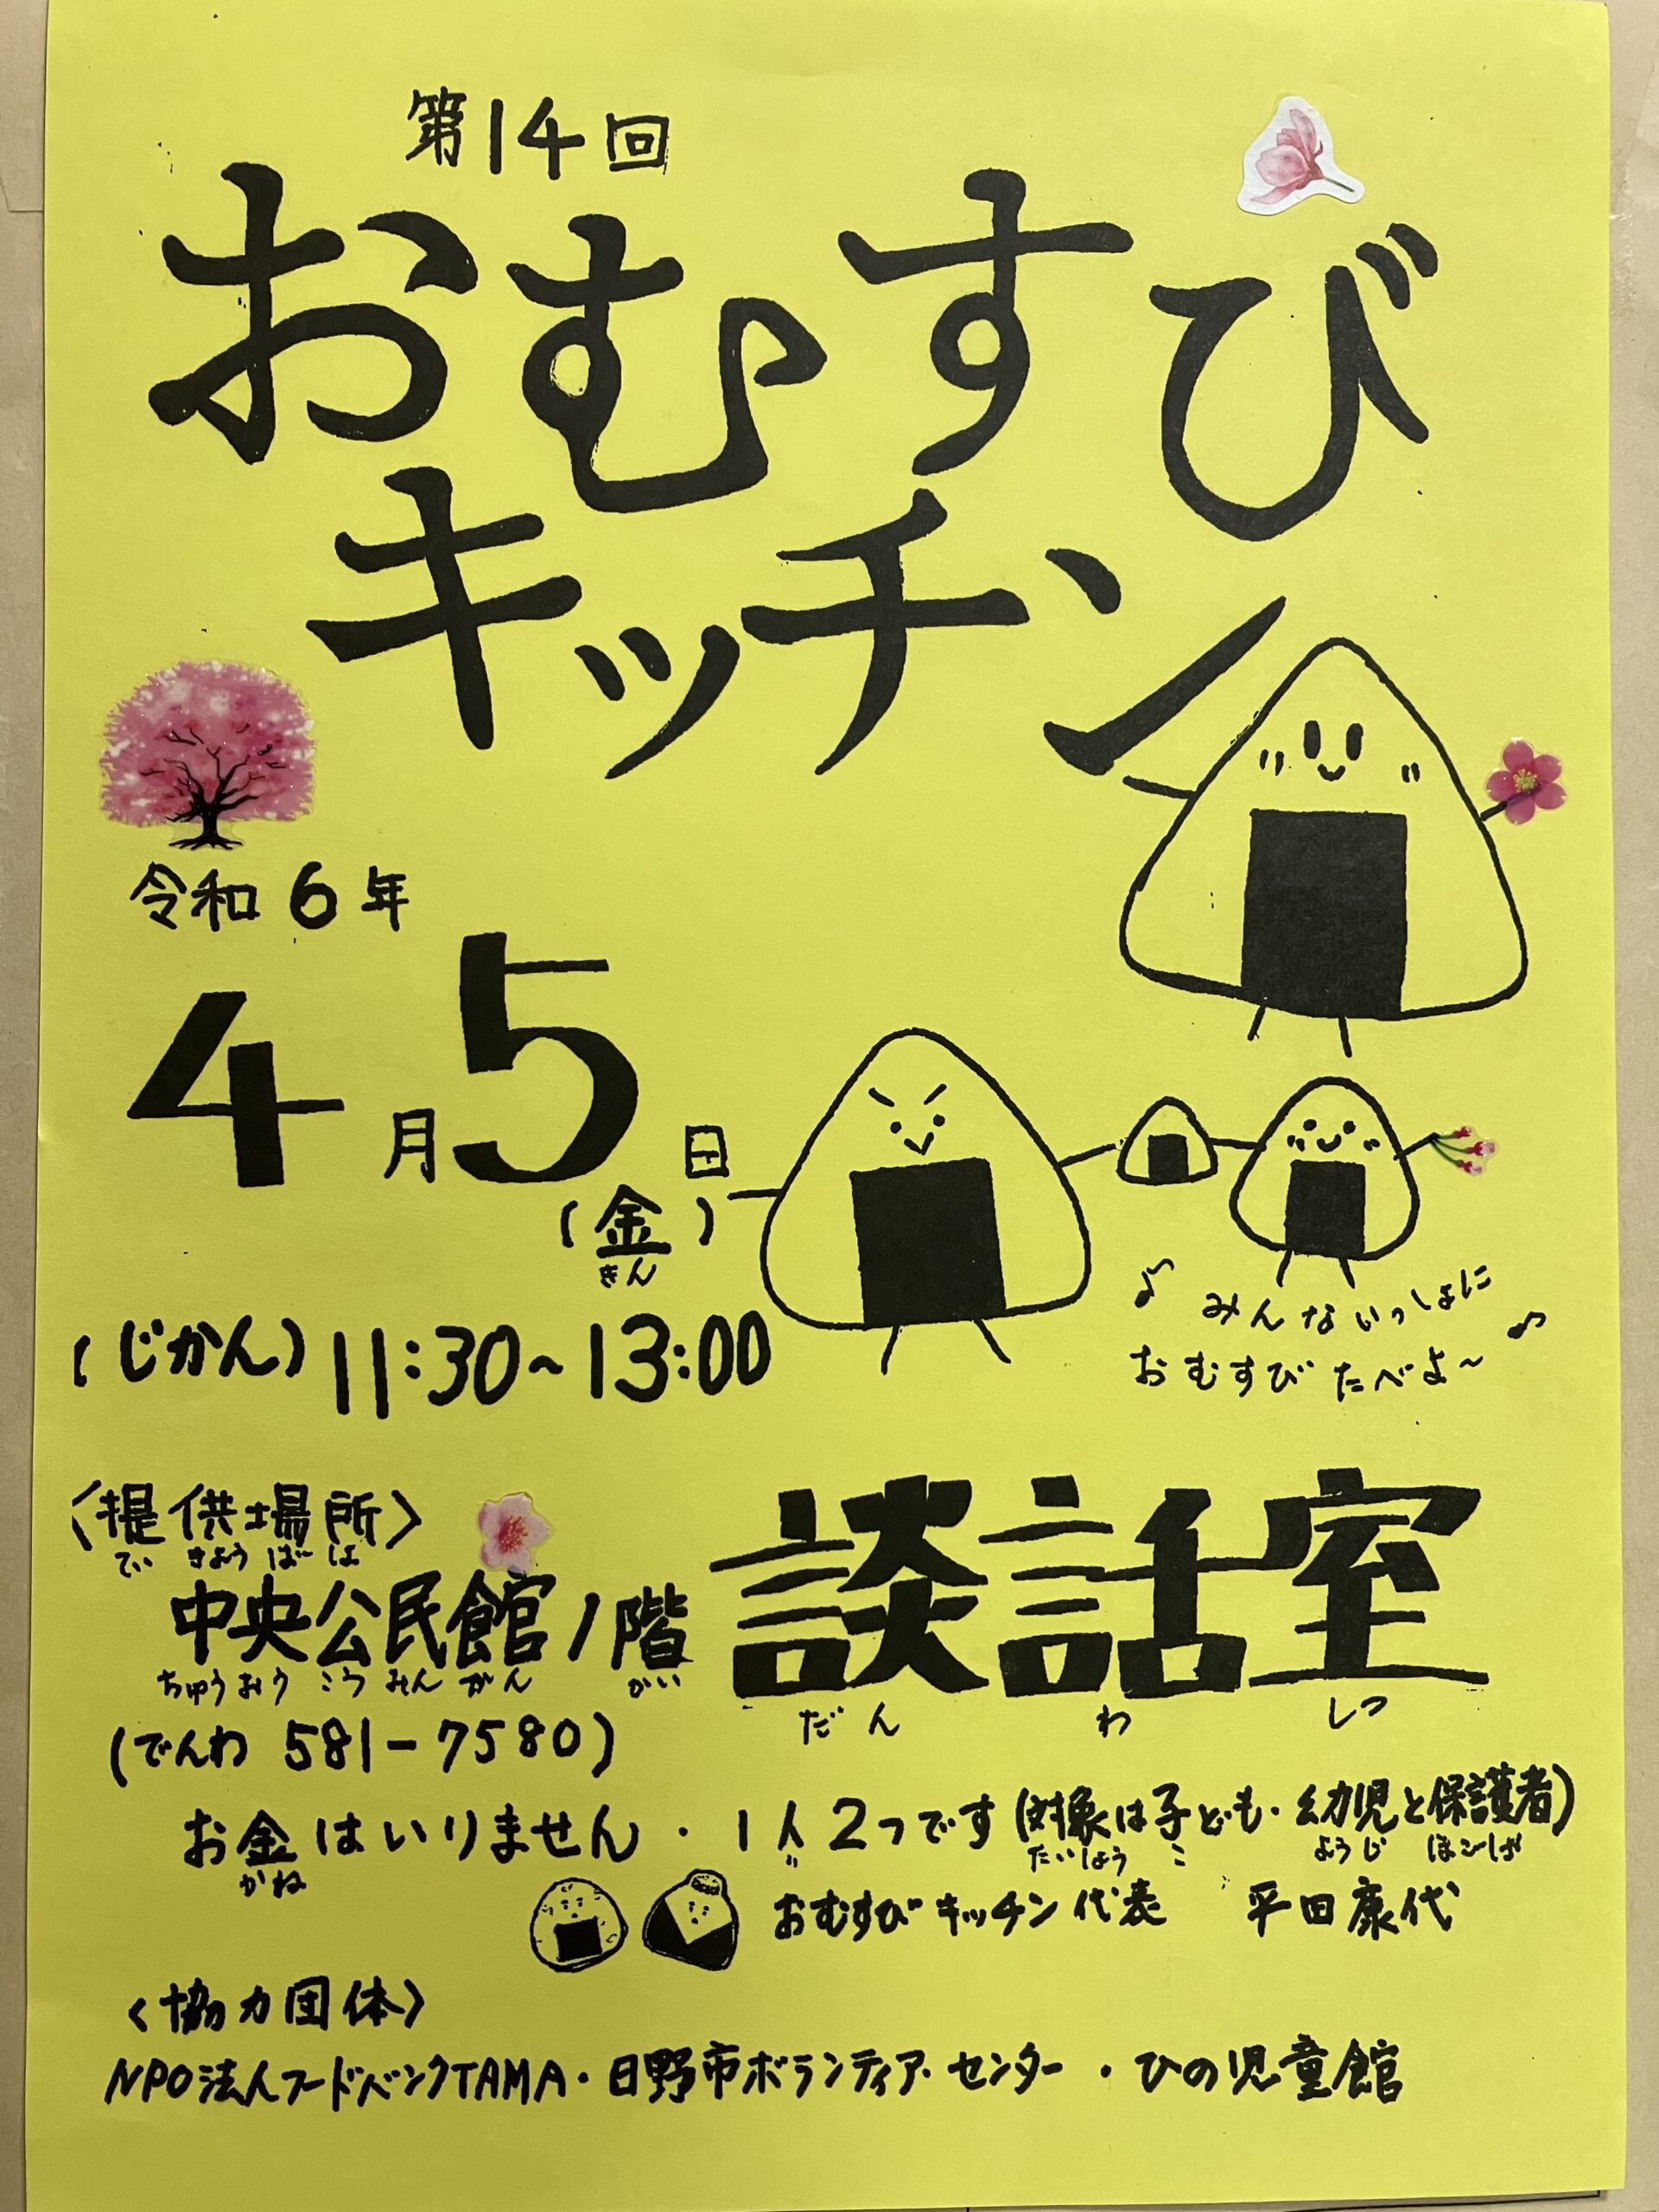 第14回
おむすび
キッチン
令和6年
4月5日
(金)
きん
(じかん) 11:30~13:00
♪ みんないっしょに
おむすび たべよ~ ♪
〈提供場所〉
ていきょうばしょ
中央公民館1階 談話室
ちゅうおうこうみんかん かい だんわしつ
(でんわ 581-7580)
お金はいりません・1人2つです(対象は子ども・幼児と保護者)
かね たいしょう こ ようじ ほごしゃ
おむすびキッチン代表 平田康代
〈協力団体〉
NPO法人フードバンクTAMA・日野市ボランティア・センター・ひの児童館